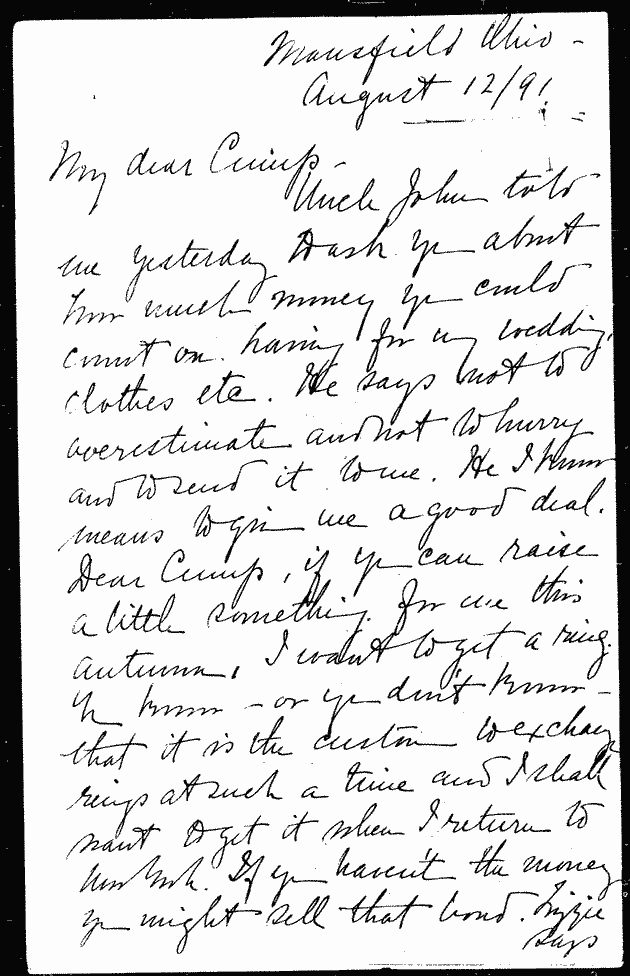 Mansfield Ohio -
August 12/91.
My dear Cump -
Uncle John told
me yesterday to ask you about
how much money you could
count on having for my wedding
clothes etc. He says not to
overestimate and not to hurry
and to send it to me. He I know
means to give me a good deal.
Dear Cump, if you can raise
a little something for me this
autumn, I want to get a ring.
You know - or you don't know -
that it is the custom to exchange
rings at such a time and I shall
want to get it when I return to
New York. If you haven't the money
you might sell that bond. Lizzie
says